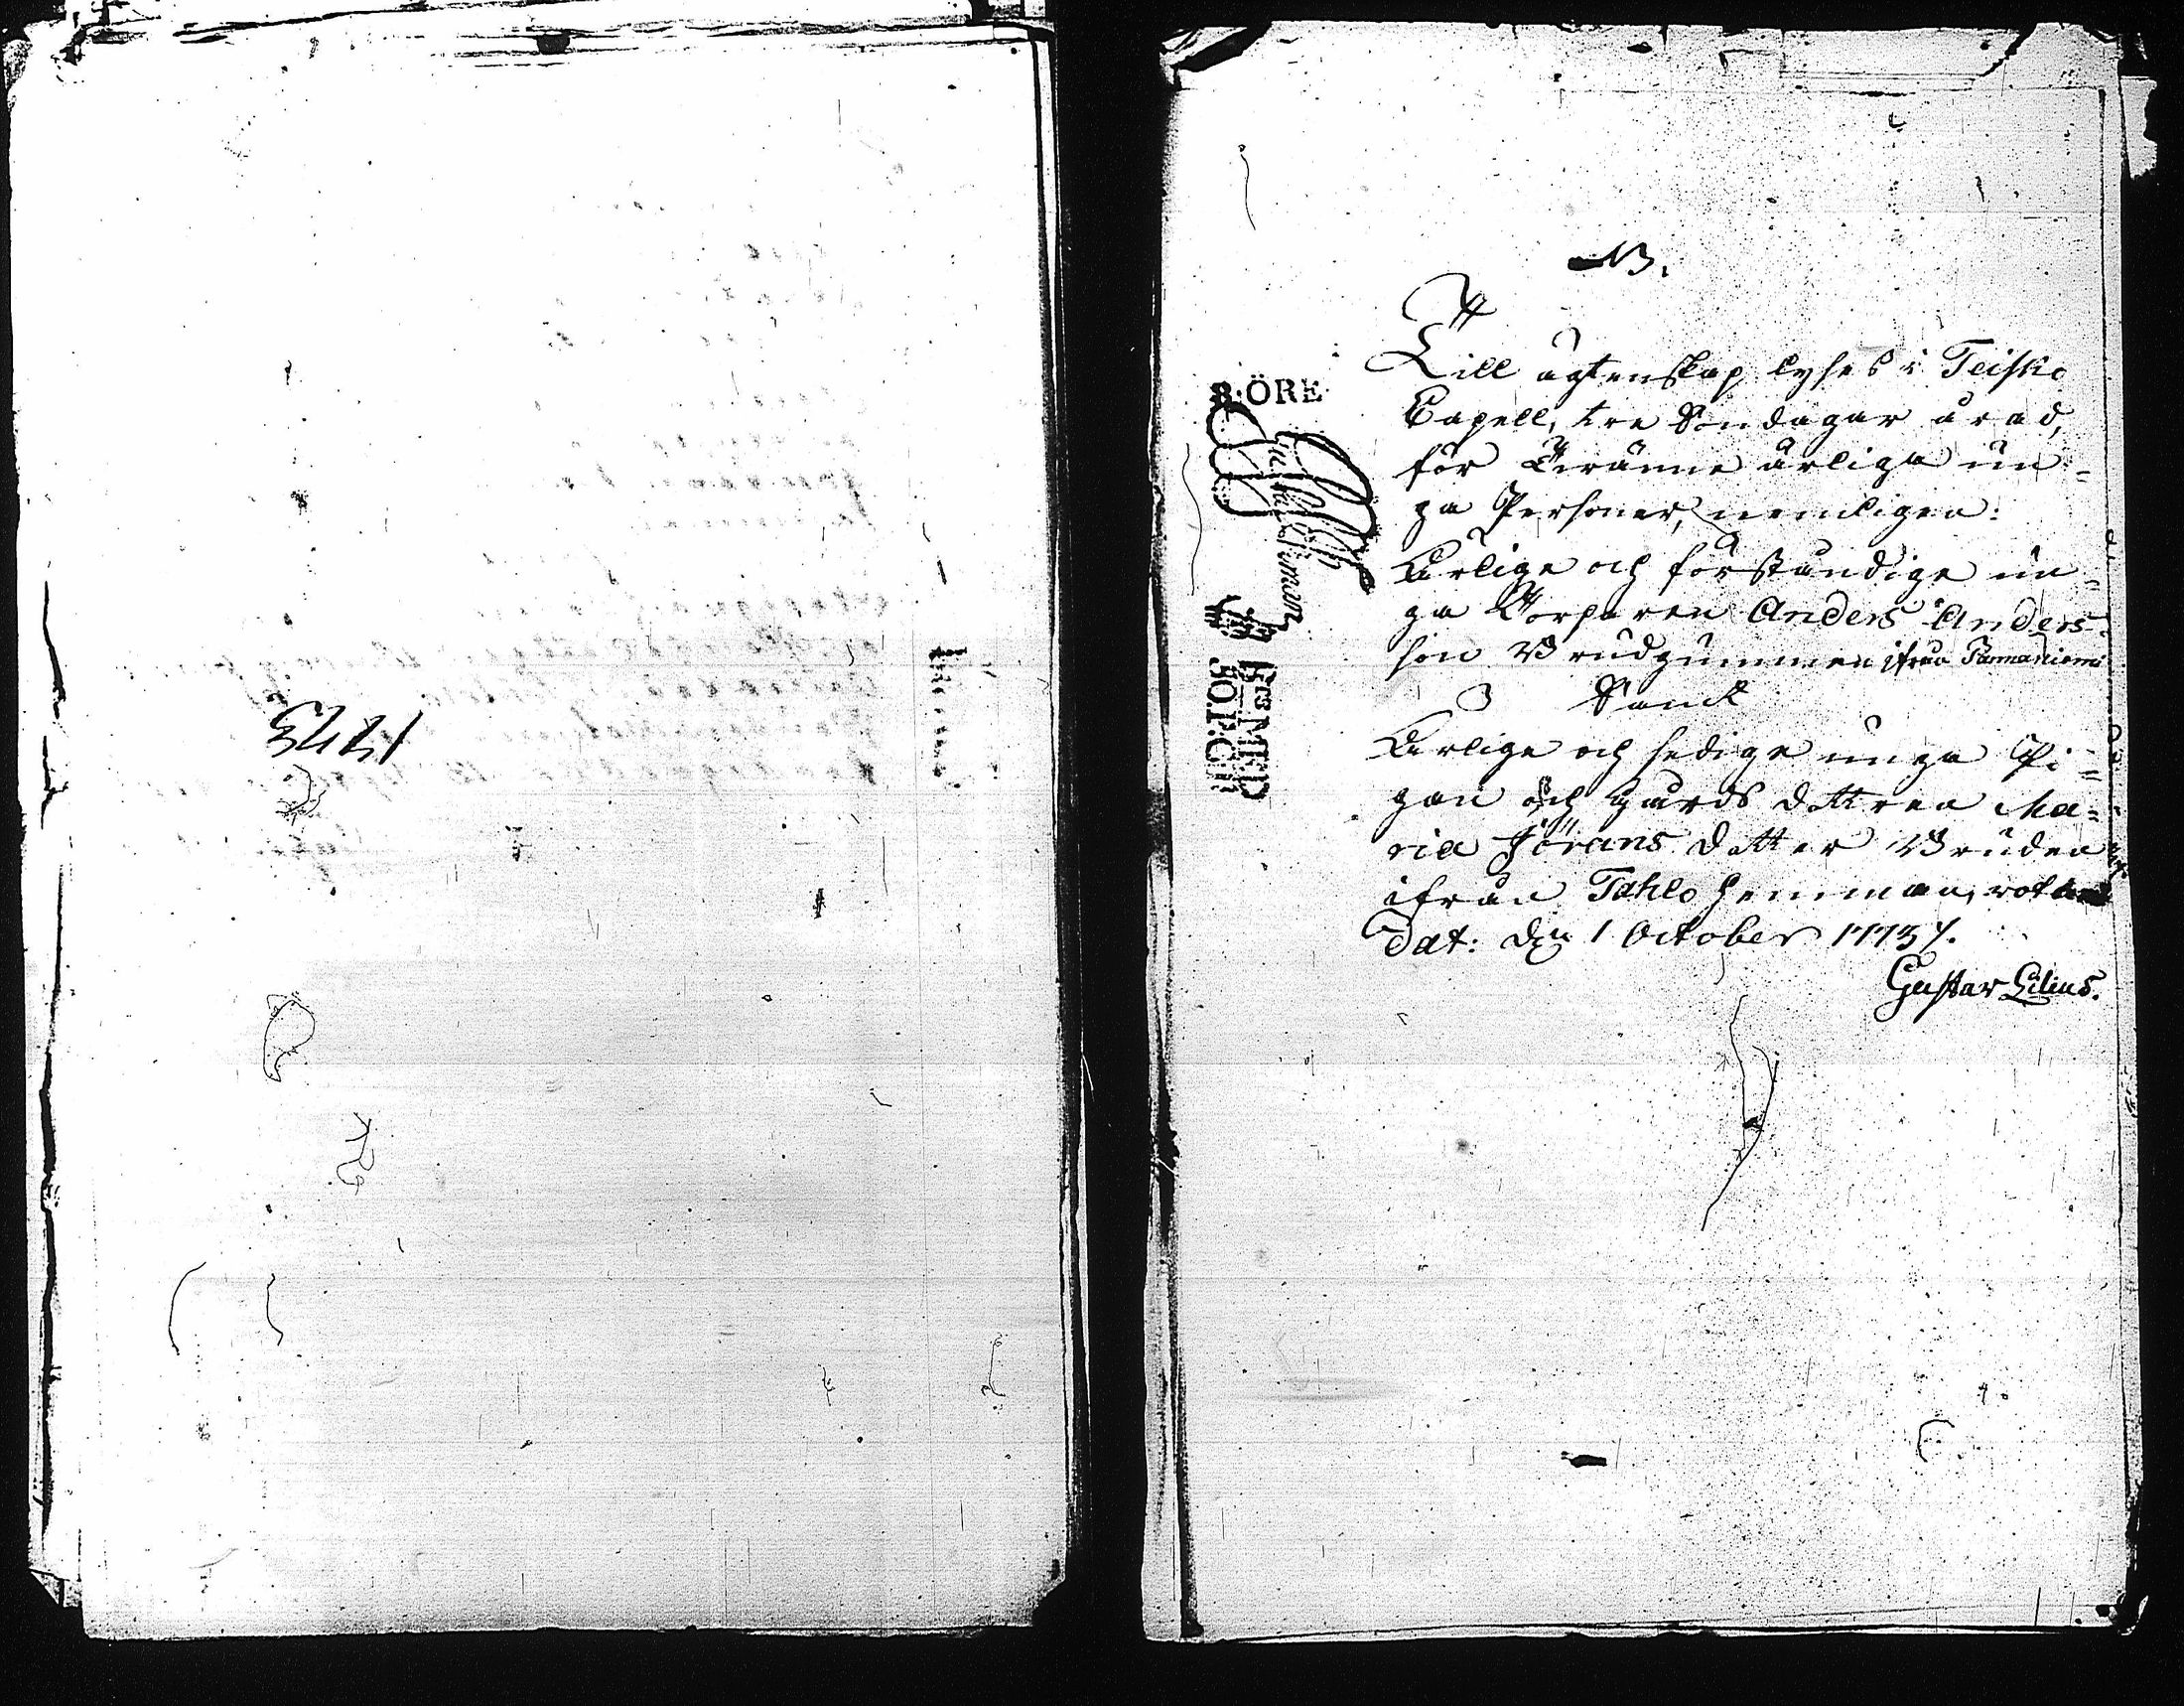 1773
N3.
Till ägtenskap lyses i Teisko
Capell, tre Söndagar å rad,
för tvänne ärliga un-
ga Personer, nemligen:
Ärlige och förståndige un-
ga Torparen Anders Anders-
son Brudgummen ifrån Parmaniemi
Samt
Ärlige och sedige unga Pi-
gan och gårds dottren Ma-
ria Jörans dotter Bruden
ifrån Tahlo hemman,
Dat: den 1 October 1773.
Gustav Lilius.
8. ÖRE